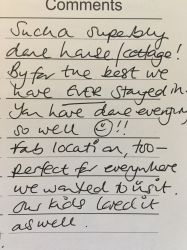 Comments
Such a superbly
done house/cottage!
By far the best we
have EVER stayed in.
You have done everything
so well ☺!!
Fab location, too-
perfect for everywhere
we wanted to visit.
Our kids loved it
as well.